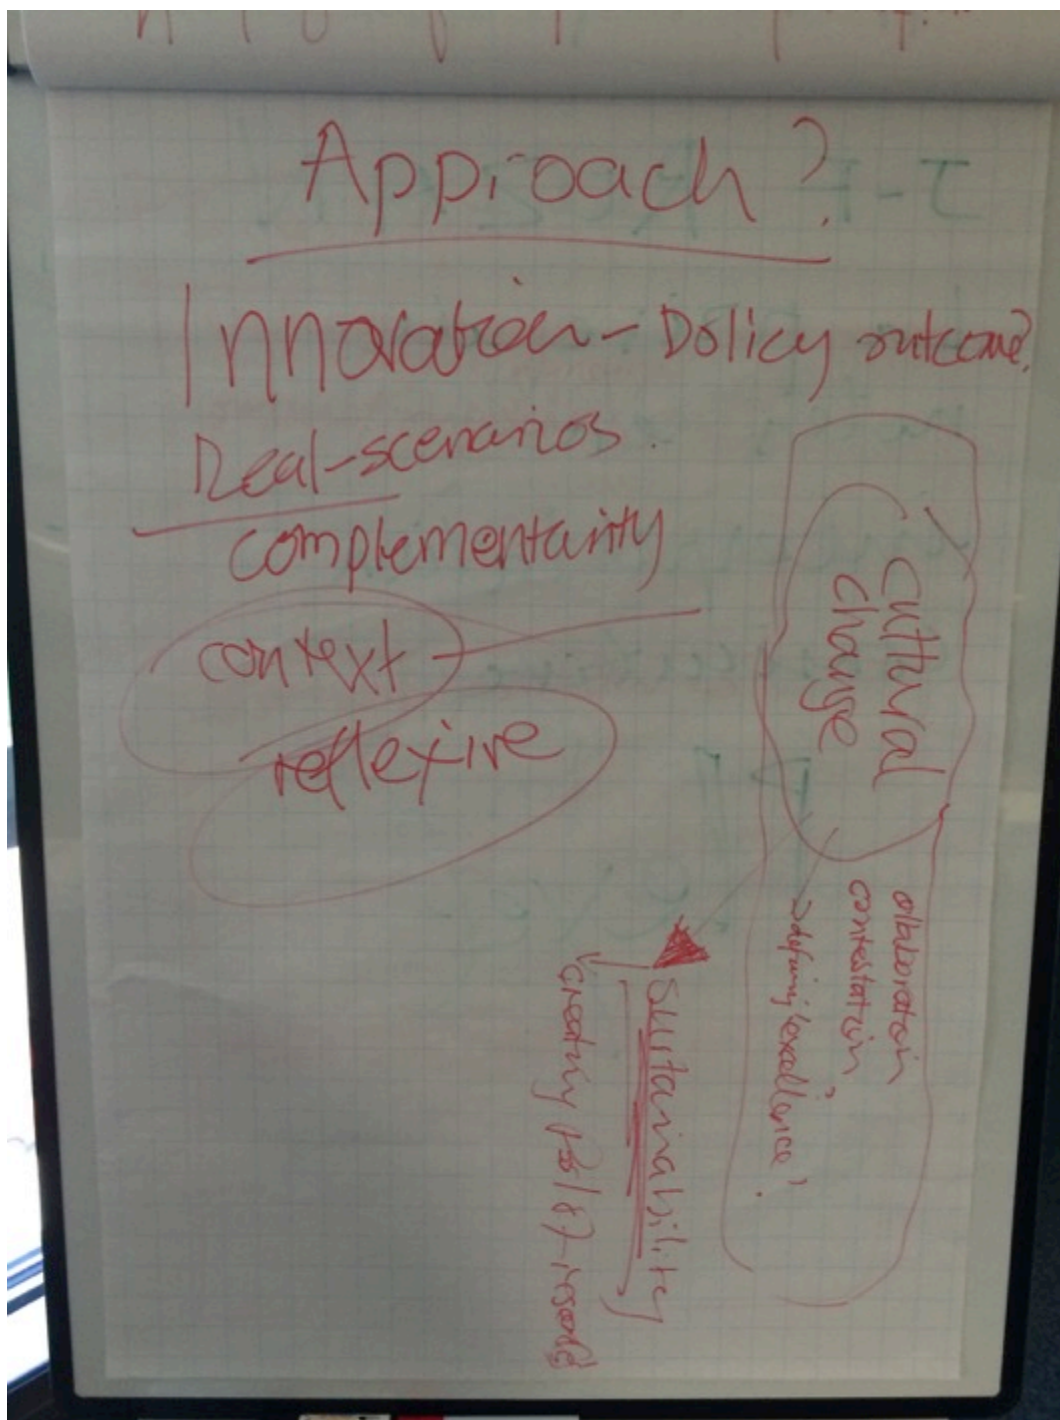 Approach?
Innovation - Policy outcome?
Real-scenarios.
complementarity
context
reflexive
Cultural
change
collaboration
contestation
defining 'excellence'.
Sustainability
creating